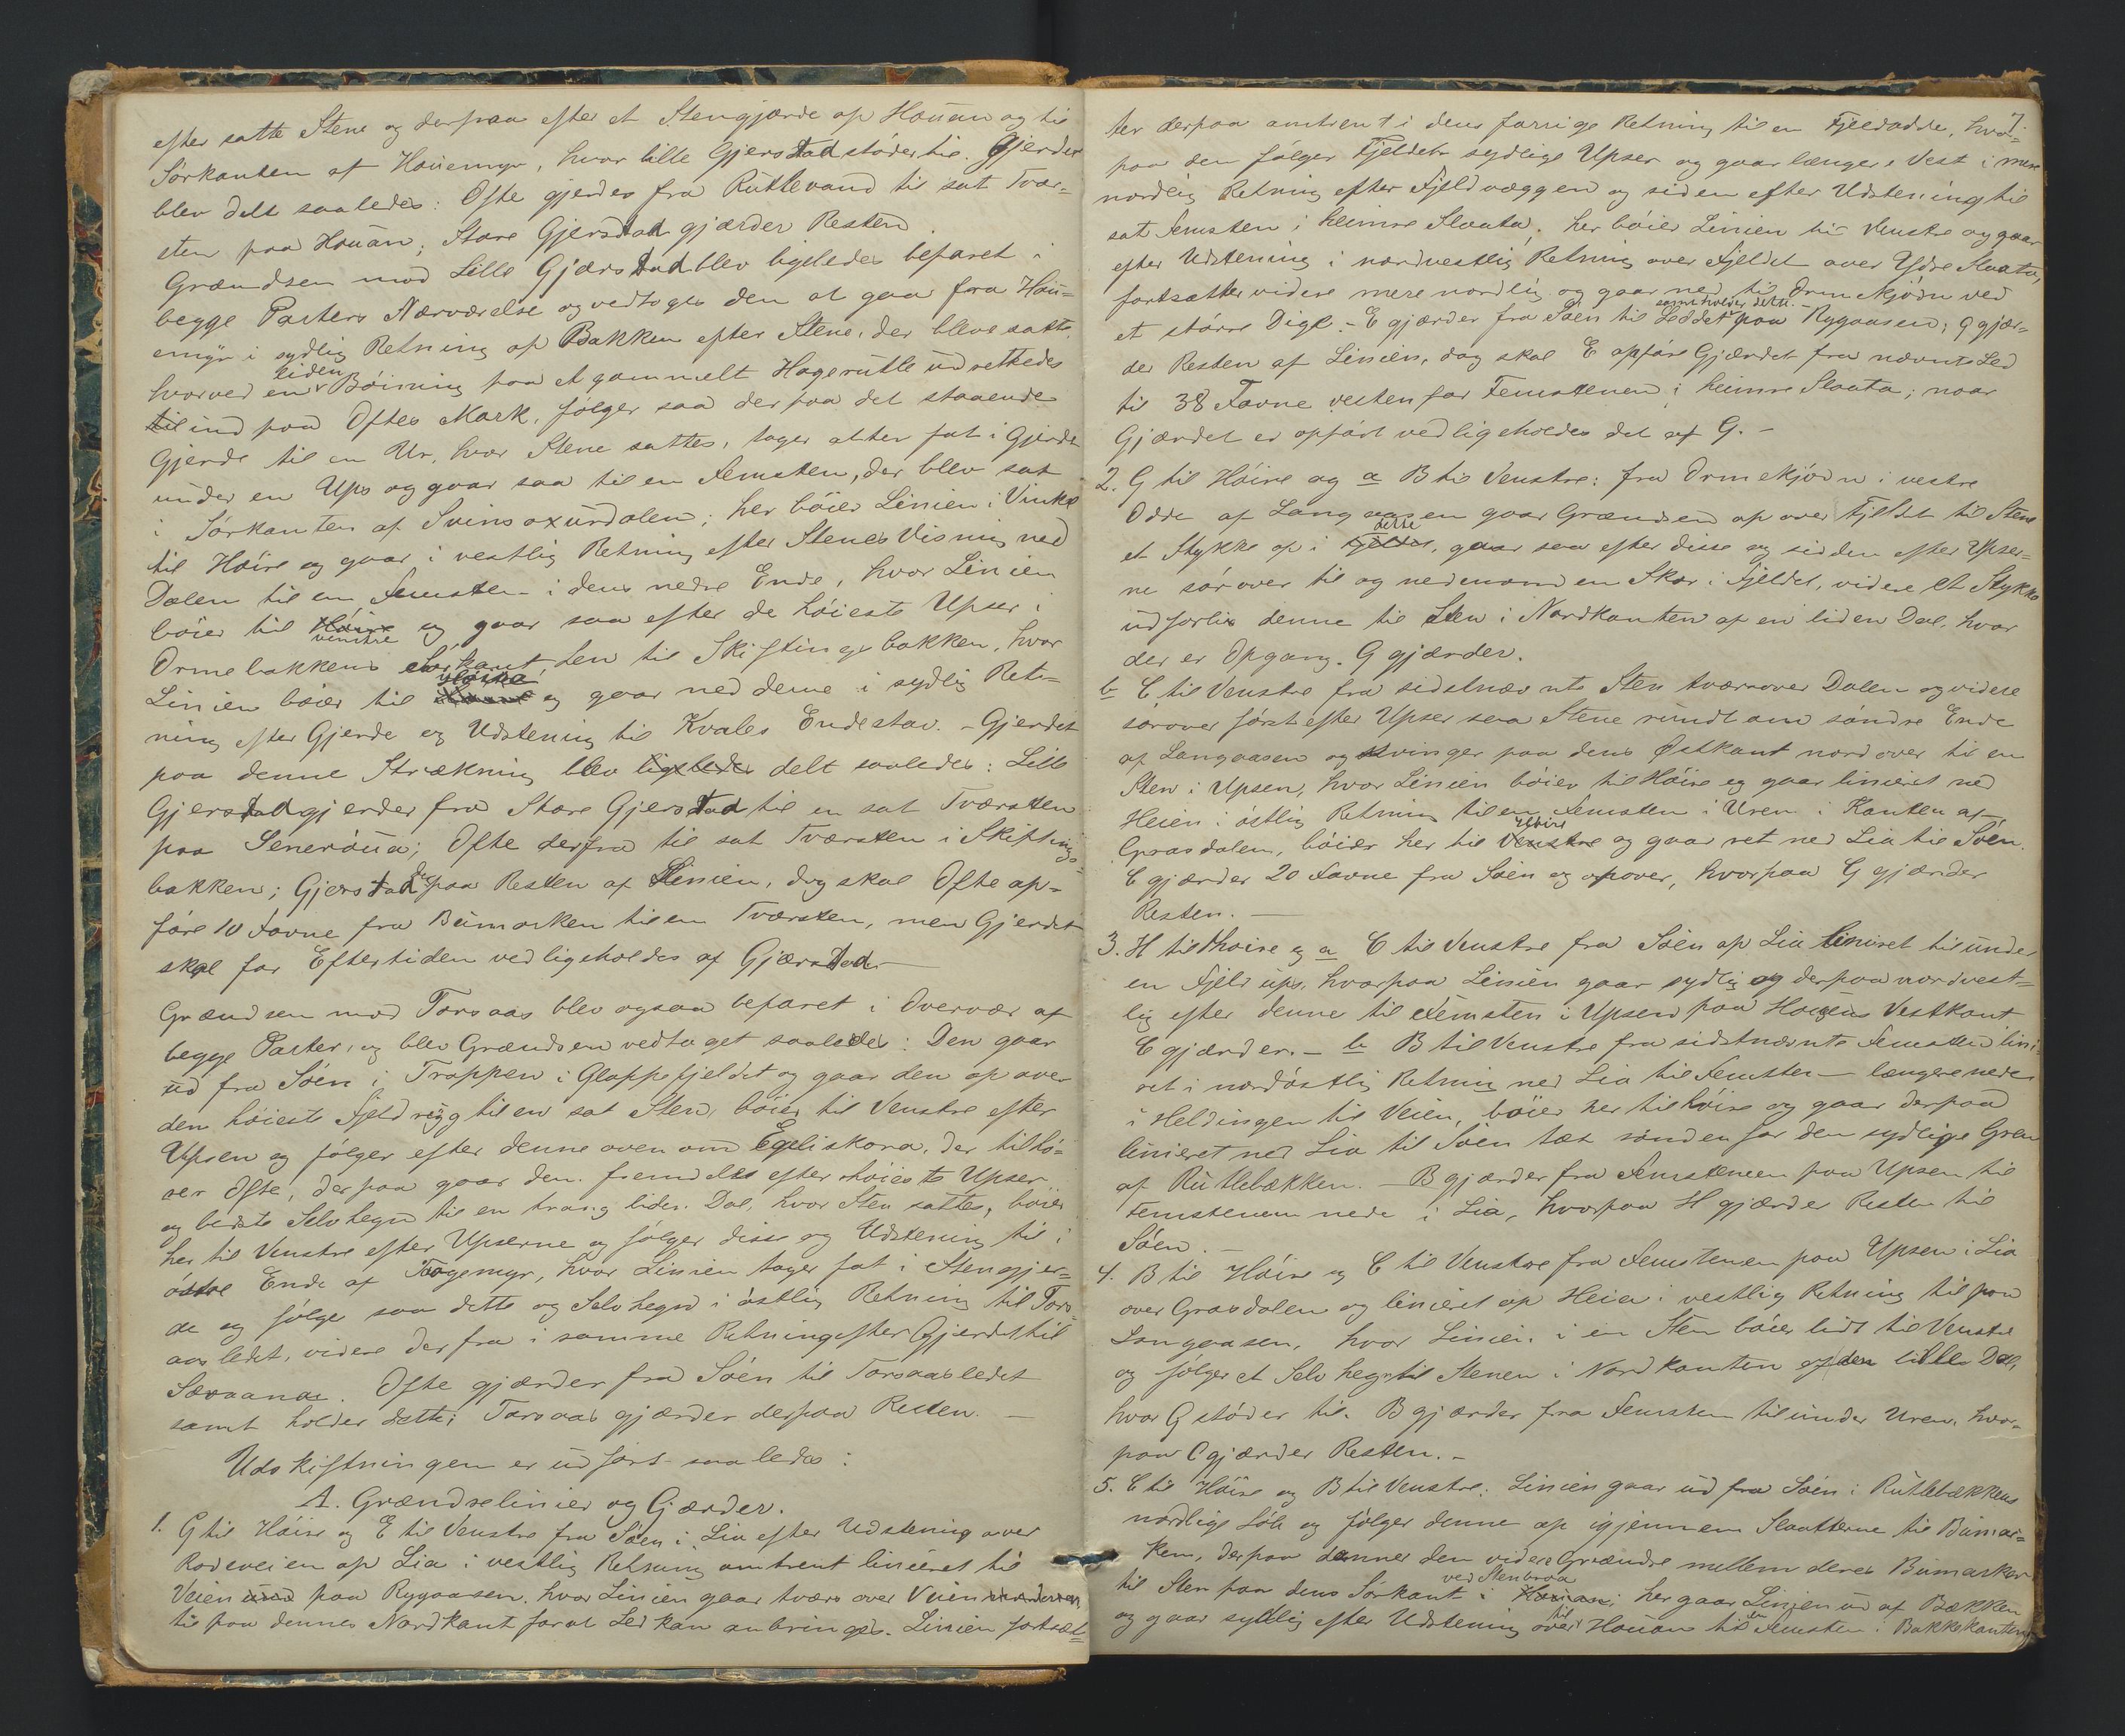 efter satte Stene og derpaa efter et Stengjærde op Houan og til
Sörkanten af Houemyr, hvor lille Gjerstad stöder til. Gjerdet
blev delt saaledes: Ofte gjerdes fra Rutlevand til sat Tvær-
sten paa Houan; Store Gjerstad gjærder Resten
Grændsen mod Lille Gjærstad blev ligeledes befaret i
begge Parters Nærværelse og vedtoges den at gaa fra Hou-
emyr i sydlig Retning op Bakken efter Stene, der bleve satte,
hvorved en liden Böining paa et gammelt Hagerutle udrettedes
til ind paa Oftes Mark, fölger saa derpaa det staaende
Gjerde til en Ur, hvor Stene sattes, tager atter fat i Gjerdet
under en Ups og gaar saa til en Femsten, der blev sat
i Sörkanten af Svinsoxurdalen; her böier Linien i Vinkel
til Höire og gaar i vestlig Retning efter Stenes Visning ned
Dalen til en Femsten i dens nedre Ende, hvor Linien
böier til Höire venstre og gaar saa efter de höieste Upser i
Ormebakkens Sörkant hen til Skiftingsbakken, hvor
Linien böier til höire og gaar ned denne i sydlig Ret-
ning efter Gjerde og Udstening til Kvales Endestav. - Gjerdet
paa denne Strækning blev ligeledes delt saaledes: Lille
Gjerstad gjerder fra Store Gjerstad til en sat Tværsten
paa Seneröua; Ofte derfra til sat Tværsten i Skiftings-
bakken; Gjerstad derpaa Resten af Linien, dog skal Ofte op-
före 10 Favne fra Bumarken til en Tværsten, men Gjerdet
skal for Eftertiden vedligeholdes af Gjærstad. —
Grændsen mod Torsaas blev ogsaa befaret i Overvær af
begge Parter, og blev Grændsen vedtaget saaledes: Den gaar
ud fra Söen i Trappen i Gloppefjeldet og gaar den op over
den höieste Fjeldryg til en sat Sten, böier til Venstre efter
Upsen og fölger efter denne oven om Egeliskora, der tilhö-
rer Ofte, derpaa gaar den fremdeles efter höieste Upser
og bedste Selvhegn til en trang liden Dal, hvor Sten sattes, böier
her til Venstre efter Upserne og fölger disse og Udstening til i
östre Ende af Togemyr, hvor Linien tager fat i Stengjer-
de og fölge saa dette og Selvhegn i östlig Retning til Tors-
aasledet, videre derfra i samme Retning efter Gjerdet til
Sævaanae. Ofte gjærder fra Söen til Torsaasledet
samt holder dette; Torsaas gjærder derpaa Resten. —
Udskiftningen er udfört saaledes:
A. Grændselinier og Gjærder.
1. G til Höire og E til Venstre fra Söen i Lia efter Udstening over
Rodeveien op Lia i vestlig Retning omtrent linieret til
Veien paa Rygaasen, hvor Linien gaar tværs over Veien
til paa dennes Nordkant forat Led kan anbringes. Linien fortsæt-
7.
ter derpaa omtrent i dens forrige Retning til en Fjeldodde, hvor-
paa den fölger Fjeldets sydlige Upser og gaar længere Vest i mere
nordlig Retning efter Fjeldvæggen og siden efter Udstening til
sat Femsten i heimre Slaata; her böier Linien til Venstre og gaar
efter Udstening i nordvestlig Retning over Fjeldet over Ydre Slaata,
fortsætter videre mere nordlig og gaar ned til Ormekjödn ved
et större Dige. - E gjærder fra Söen til Leddet samt holder dette paa Rygaasen; G gjær-
der Resten af Linien, dog skal E opföre Gjærdet fra nævnte Led
til 38 Favne vesten for Femstenen i heimre Slaata; naar
Gjærdet er opfört vedligeholdes det af G. -
2. G til Höire og a B til Venstre: fra Ormekjödn i vestre
Odde af Langaasen gaar Grændsen op over Fjeldet til Stene
et Stykke op i Fjeldet dette, gaar saa efter disse og siden efter Upser-
ne sörover til og nedenom en Skor i Fjeldet, videre et Stykke
udforbi denne til Sten i Nordkanten af en liden Dal, hvor
der er Opgang. G gjærder.
b C til Venstre fra sidstnævnte Sten tværsover Dalen og videre
sörover först efter Upser saa Stene rundt om söndre Ende
af Langaasen og svinger paa dens Östkant nordover til en
Sten i Upsen, hvor Linien böier til Höire og gaar linieret ned
Heien i östlig Retning til en Femsten i Uren i Kanten af
Grasdalen, böier her til Venstre Höire og gaar ret ned Lia til Söen.
C gjærder 20 Favne fra Söen og opover, hvorpaa G gjærder
Resten. —
3. H til höire og a C til Venstre fra Söen op Lia linieret til under
en Fjeldups, hvorpaa Linien gaar sydlig og derpaa nordvest-
lig efter denne til Femsten i Upsen paa Houens Vestkant
C gjærder. - b B til Venstre fra sidstnævnte Femsten lini-
ret i nordöstlig Retning ned Lia til Femsten — længere nede
i Heldingen til Veien, böier her til höire og gaar derpaa
linieret ned Lia til Söen tæt sönden for den sydlige Gren
af Rutlebækken. — B gjærder fra Femstenen paa Upsen til
Femstenen nede i Lia, hvorpaa H gjærder Resten til
Söen. —
4. B til Höire og C til Venstre fra Femstenen paa Upsen i Lia
over Grasdalen og linieret op Heia i vestlig Retning til paa
Langaasen, hvor Linien i en Sten böier lidt til Venstre
og fölger et Selvhegn til Stenen i Nordkanten af den lille Dal,
hvor G stöder til. B gjærder fra Femsten til under Uren, hvor-
paa C gjærder Resten. -
5. C til Höire og B til Venstre: Linien gaar ud fra Söen i Rutlebækkens
nordlige Löb og fölger denne op igjennem Slaatterne til Bumar-
ken, derpaa danner den videre Grændse mellem deres Bumarker
til Sten paa dens Sörkant i Houan ved Stenbroa; her gaar Linien ud af Bækken
og gaar sydlig efter Udstening over til Houan til en Femsten i Bakkekanten